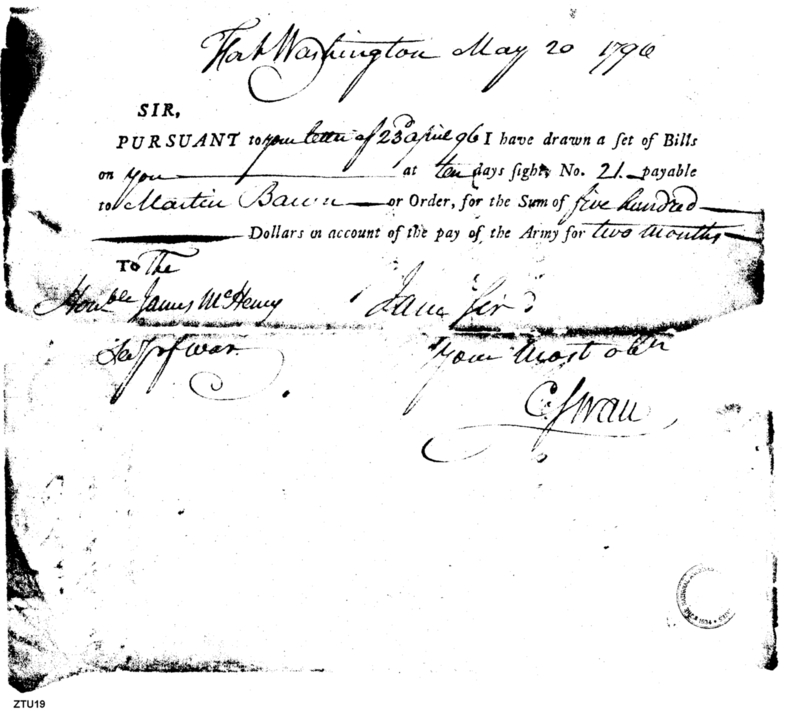 Fort Washington May 20 1796
SIR,
PURSUANT to your letter of 23d april 96 I have drawn a set of Bills
on you at ten days sight, No. 21. payable
to Martin Baum or Order, for the Sum of five hundred
Dollars on account of the pay of the Army for two months
To The
Honble James McHenry I am Sir
Secy of war Your most obt
C. Swan
1934
ZTU19